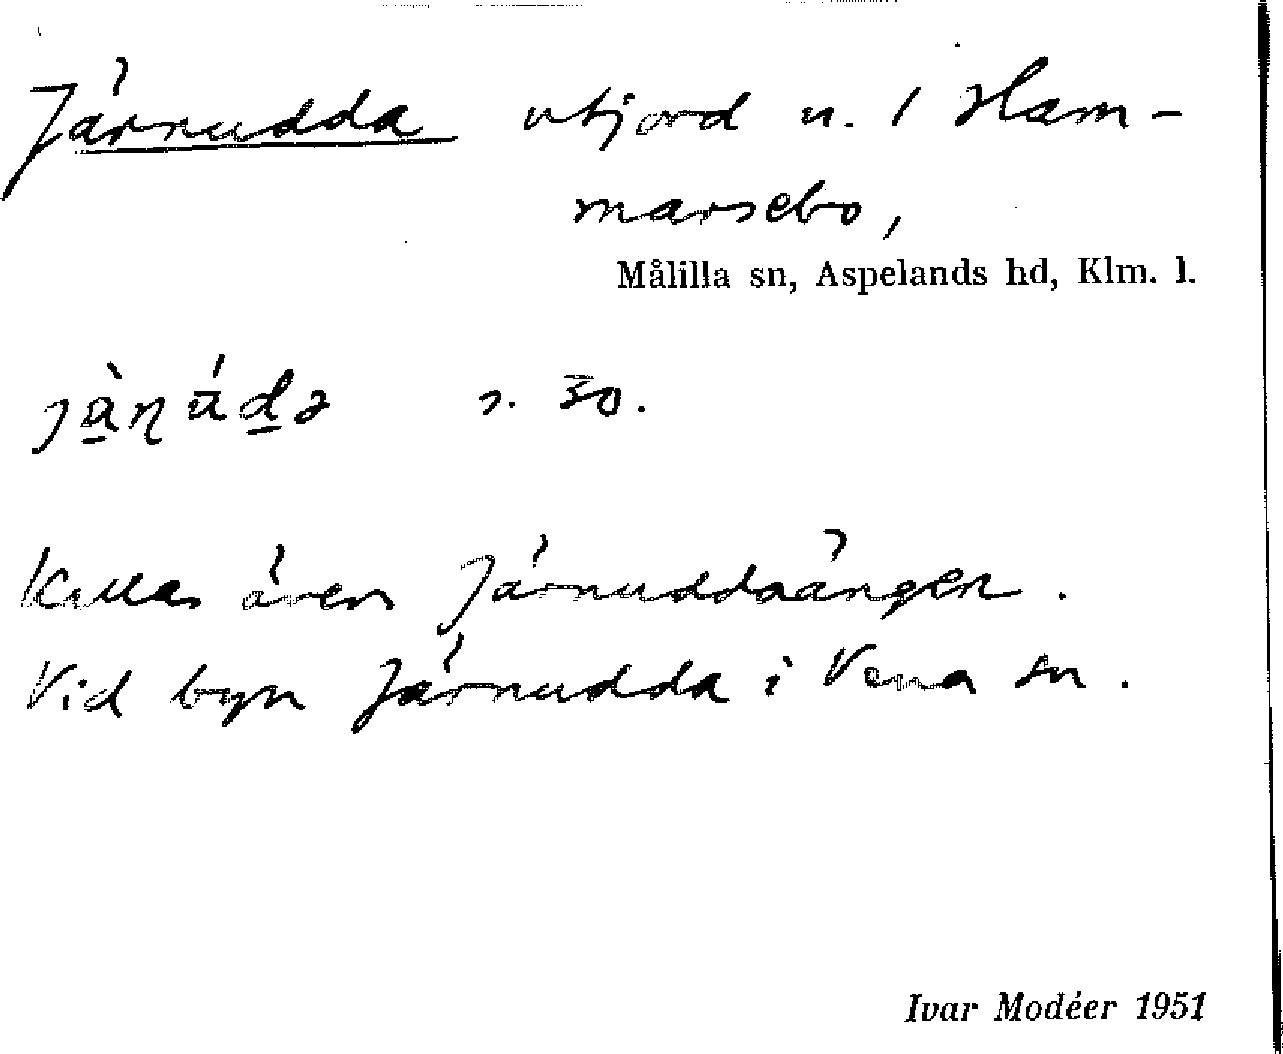 Järnudda utjord u. 1 Ham-
marsebo,
Målilla sn, Aspelands hd, Klm. l.
s. 30.
Kallas även Järnuddaängen.
Vid byn Järnudda i Vena sn.
Ivar Modéer 1951